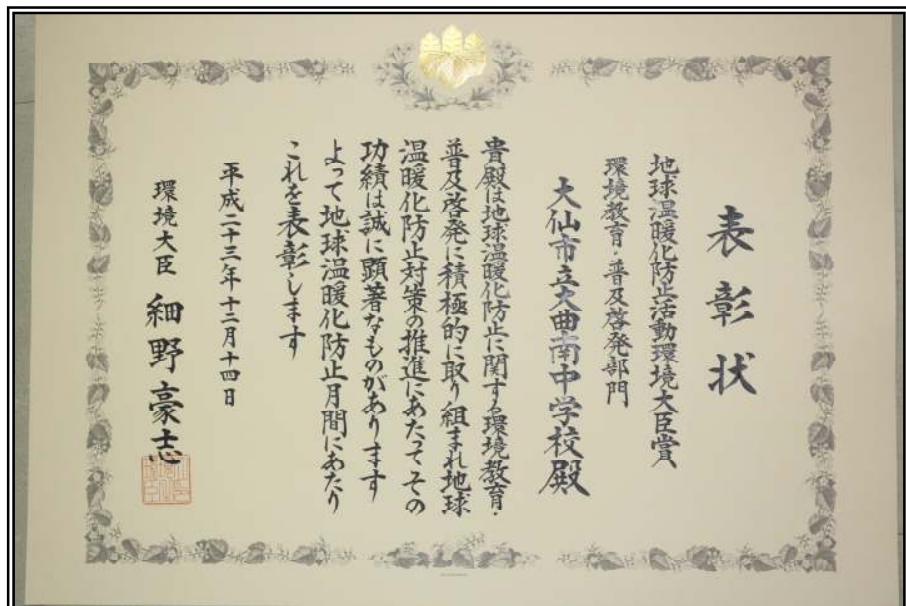 表彰状
地球温暖化防止活動環境大臣賞
環境教育・普及啓発部門
大仙市立大曲南中学校殿
貴殿は地球温暖化防止に関する環境教育・
普及啓発に積極的に取り組まれ地球
温暖化防止対策の推進にあたってその
功績は誠に顕著なものがあります
よって地球温暖化防止月間にあたり
これを表彰します
平成二十三年十二月十四日
環境大臣 細野豪志